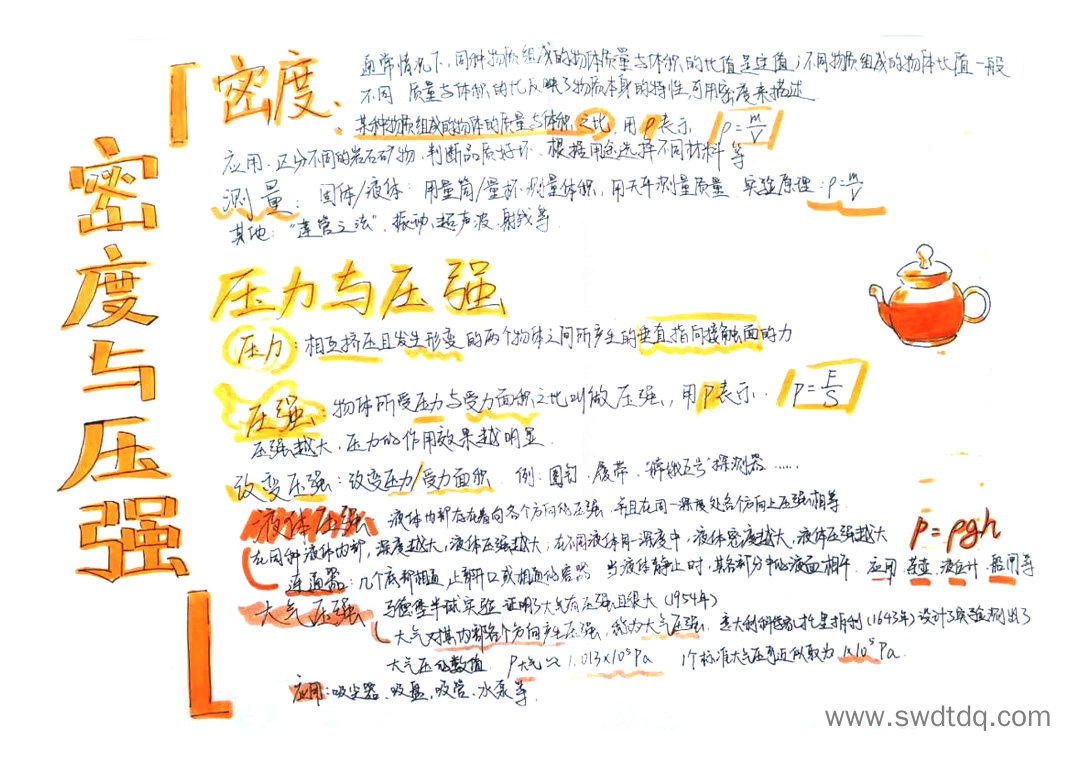 密度与压强
密度:
通常情况下,同种物质组成的物体质量与体积的比值是定值;不同物质组成的物体比值一般
不同 质量与体积的比反映了物质本身的特性,可用密度来描述.
某种物质组成的物体的质量与体积之比,用ρ表示 ρ=m/V
应用:区分不同的岩石矿物,判断品质好坏、根据用途选择不同材料等
测量: 固体/液体:用量筒/量杯测量体积,用天平测量质量 实验原理:ρ=m/V
其他: 振动、超声波、射线等.
压力与压强
压力:相互挤压且发生形变的两个物体之间所产生的垂直指向接触面的力
压强:物体所受压力与受力面积之比叫做压强,用p表示. p=F/S
压强越大,压力的作用效果越明显.
改变压强:改变压力/受力面积. 例:图钉、履带、"嫦娥五号"探测器……
液体压强 液体内部存在着向各个方向的压强,并且在同一深度处各个方向上压强相等.
在同种液体内部,深度越大,液体压强越大;在不同液体同一深度中,液体密度越大,液体压强越大 p=ρgh
连通器:几个底部相通,上部开口或相通的容器 当液体静止时,其各部分中的液面相平. 应用 茶壶 液位计 船闸等
大气压强 马德堡半球实验 证明了大气有压强且很大(1954年)
大气对其内部各个方向产生压强,称为大气压强. 意大利科学家托里拆利(1643年)设计实验测出了
大气压的数值. p大气≈1.013×10⁵Pa 1个标准大气压可近似取为1×10⁵Pa.
应用:吸尘器、吸盘,吸管、水泵等.
www.swdtdq.com